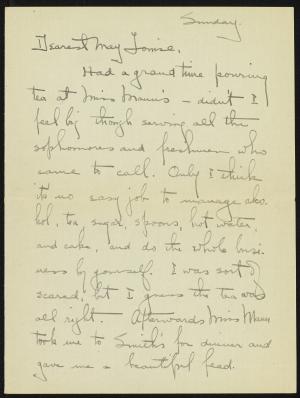 Sunday.
Dearest May Louise,
Had a grand time pouring
tea at Miss Mann's – didn't I
feel big though serving all the
sophomores and freshmen who
came to call. Only I think
it's no easy job to manage alco-
hol, tea, sugar, spoons, hot water,
and cake, and do the whole busi-
ness by yourself. I was sort of
scared, but I guess the tea was
all right. – Afterwards Miss Mann
took me to Smith's for dinner and
gave me a beautiful feed.